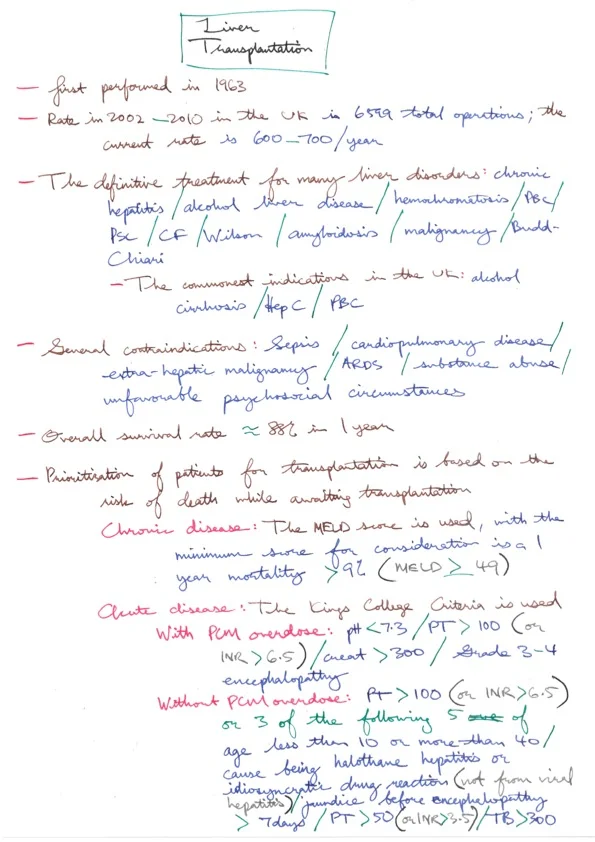 Liver
Transplantation
— first performed in 1963
— Rate in 2002–2010 in the UK is 6599 total operations; the
current rate is 600–700/year
— The definitive treatment for many liver disorders: chronic
hepatitis/alcohol liver disease/hemochromatosis/PBC/
PSC/CF/Wilson/amyloidosis/malignancy/Budd-
Chiari
– The commonest indications in the UK: alcohol
cirrhosis/Hep C/PBC
— General contraindications: Sepsis/cardiopulmonary disease/
extra-hepatic malignancy/ARDS/substance abuse/
unfavorable psychosocial circumstances
— Overall survival rate ≈ 88% in 1 year
— Prioritization of patients for transplantation is based on the
risk of death while awaiting transplantation
Chronic disease: The MELD score is used, with the
minimum score for consideration is a 1
year mortality >9% (MELD ≥ 49)
Acute disease: The Kings College Criteria is used
With PCM overdose: pH<7.3/PT>100 (or
INR>6.5)/creat>300/Grade 3-4
encephalopathy
Without PCM overdose: PT>100 (or INR>6.5)
or 3 of the following 5 of
age less than 10 or more than 40/
cause being halothane hepatitis or
idiosyncratic drug reaction (not from viral
hepatitis)/jaundice before encephalopathy
> 7days/PT>50 (or INR>3.5)/TB>300